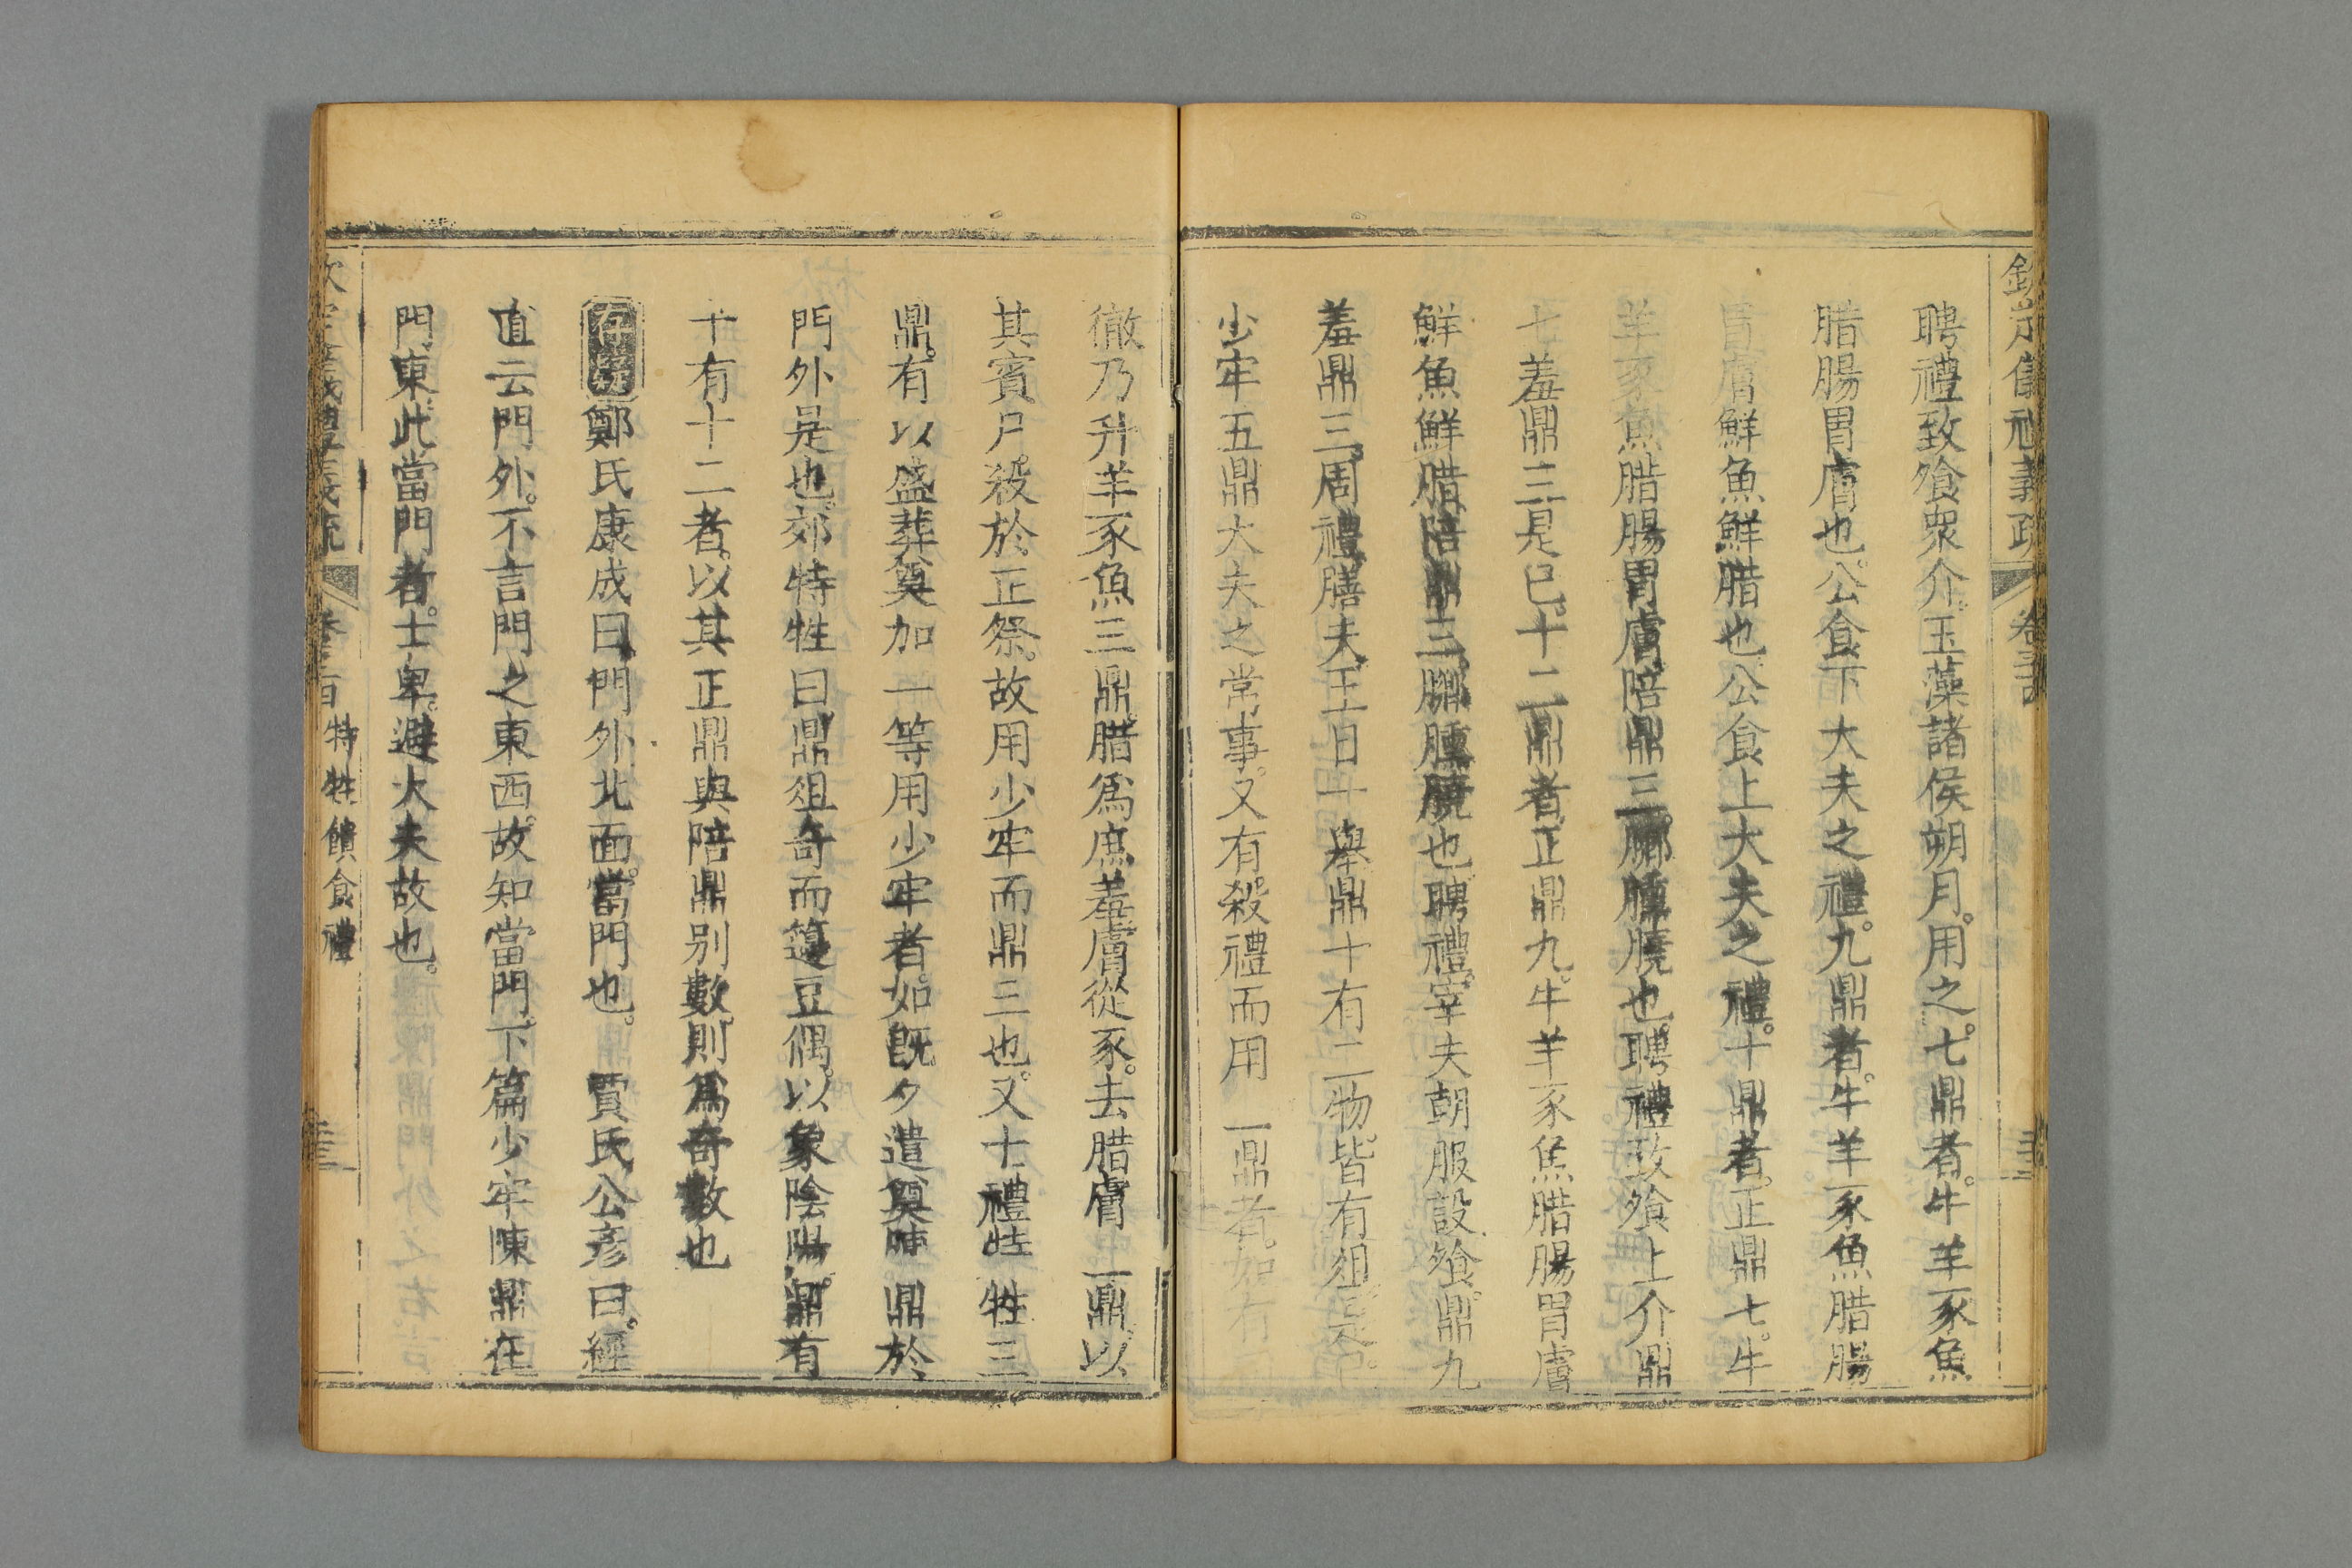 欽定儀禮義疏 卷三
聘禮致飧衆介玉藻諸侯朔月。用之。七鼎者。牛羊豕魚
腊腸胃膚也。公食下大夫之禮。九鼎者。牛羊豕魚腊腸
胃膚鮮魚鮮腊也公食上大夫之禮。十鼎者。正鼎七。牛
羊豕魚腊腸胃膚陪鼎三膷臐膮也。聘禮致飧上介鼎
七羞鼎三是已。十二鼎者正鼎九。牛羊豕魚腊腸胃膚
鮮魚鮮腊陪鼎三膷臐膮也聘禮。宰夫朝服設飧。鼎九
羞鼎三。周禮膳夫王日一舉鼎十有二物。皆有俎是已。
少牢五鼎大夫之常事。又有殺禮而用一鼎者。如有
徹乃升羊豕魚三鼎。腊爲庶羞。膚從豕。去腊膚二鼎。以
其賓尸。殺於正祭。故用少牢而鼎三也。又士禮特牲三
鼎。有以盛葬奠加一等用少牢者。如旣夕遣奠陳鼎於
門外是也。郊特牲曰鼎俎奇而籩豆偶。以象陰陽。鼎有
十有十二者。以其正鼎與陪鼎别數。則爲奇數也
存疑鄭氏康成曰門外北面。當門也。 賈氏公彥曰。經
直云門外。不言門之東西。故知當門。下篇少牢陳鼎在
門東。此當門者。士卑。避大夫故也。
特牲饋食禮